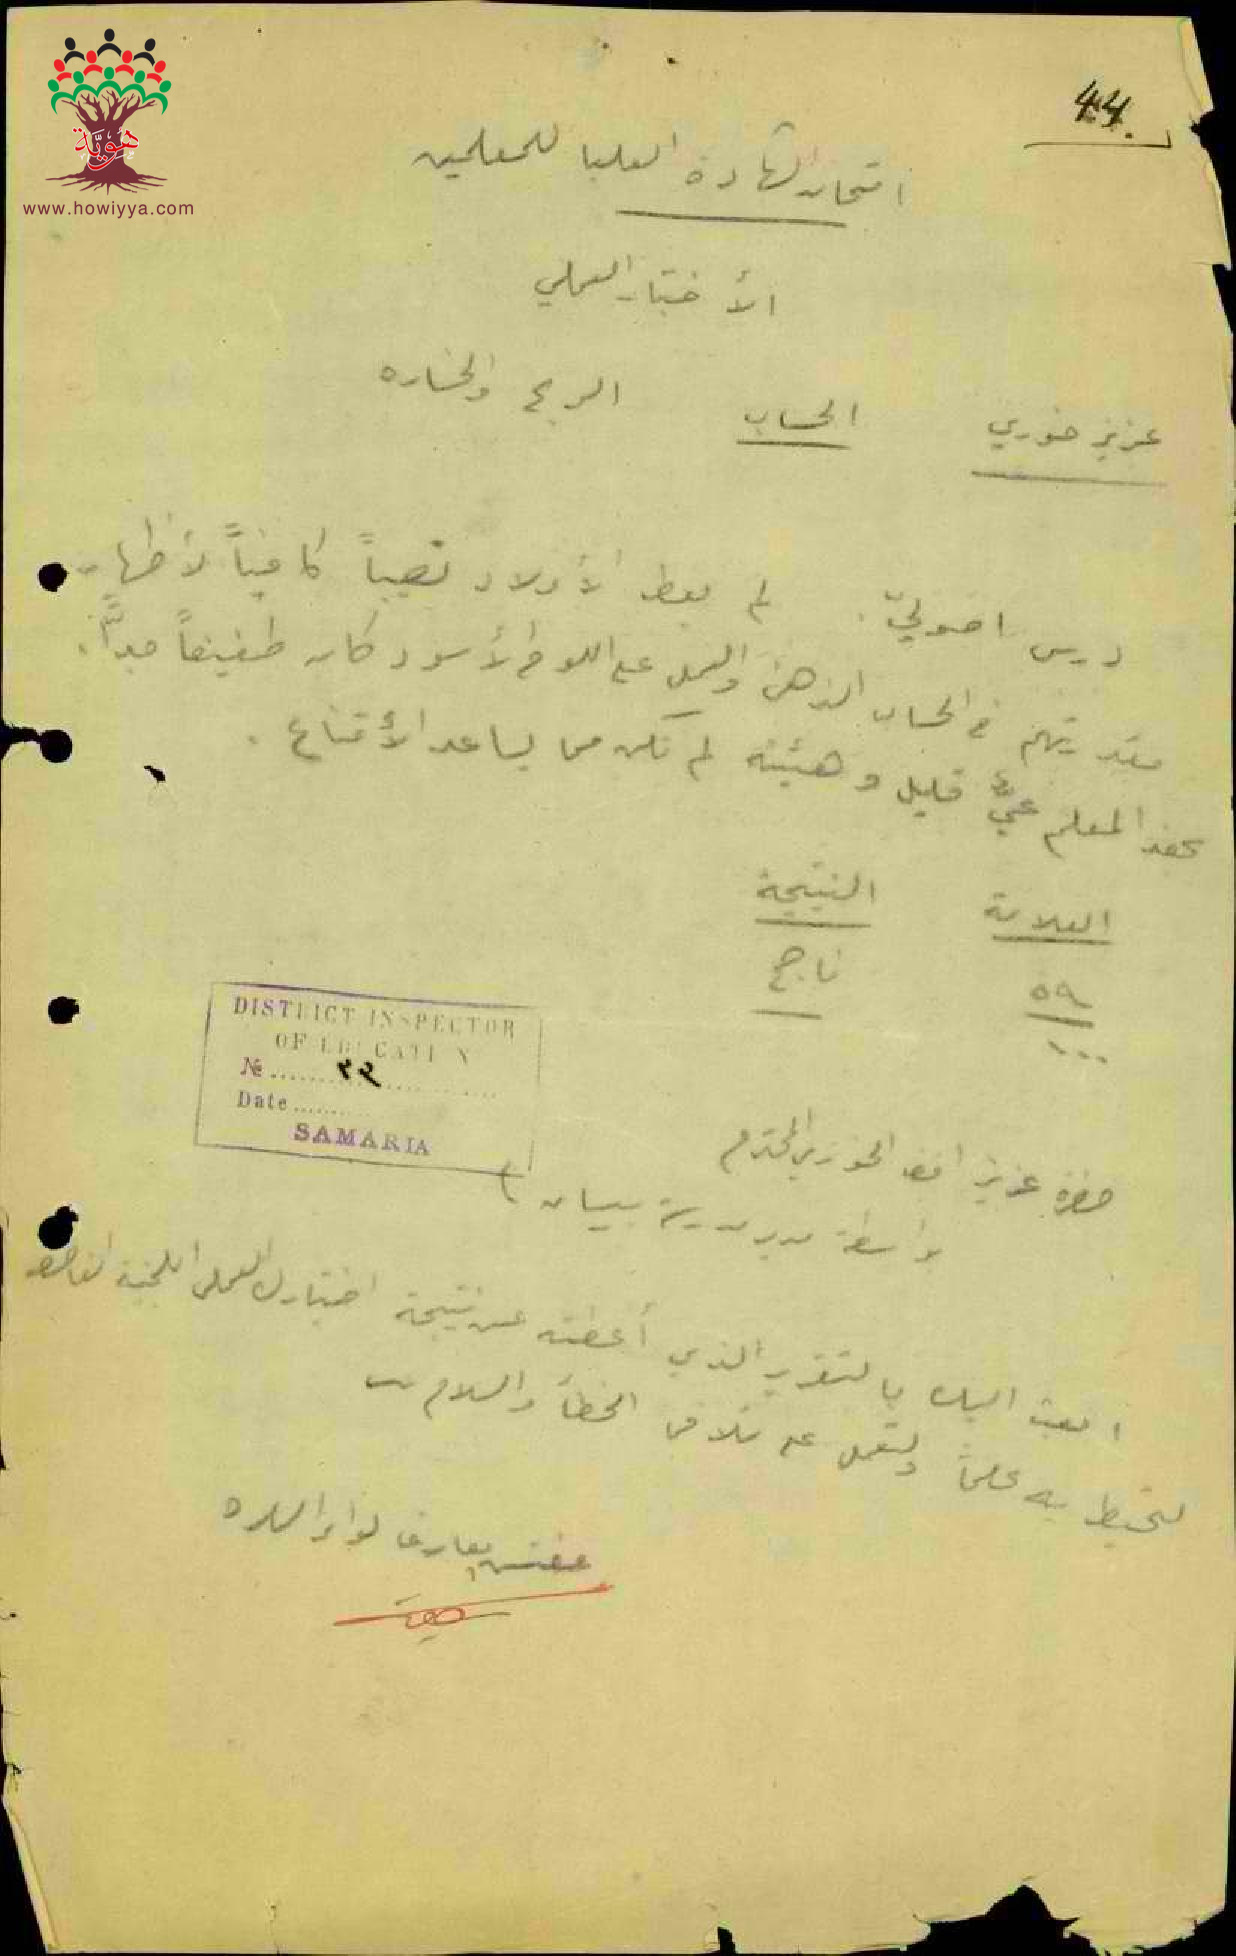 هوية
www.howiyya.com
44.
امتحان الشهادة العليا للمعلمين
الأختبار العملي
عزيز خوري الحساب الربح والخساره
درس اصوليّ. لم يعط الأولاد نصيباً كافياً لأظهار
مقدرتهم في الحساب الذهني والعمل على اللوح الأسود كان طفيفاً جداً.
المعلم قليل وهيئته لم تكن مما يساعد الأقناع.
العلامة النتيجة
٥٩ ناجح
١٠٠
DISTRICT INSPECTOR
OF EDUCATION
№ ٣٢
Date
SAMARIA
حضرة عزيز افندي الخوري المحترم
بواسطة مدير مدرسة بيسان
ابعث اليك بالتقرير الذي أعطته عن نتيجة اختبارك العملي اللجنة الفاحصة
لتحيط به علماً ولتعمل على تلافي الخطأ والسلام
مفتش معارف لواء السامره